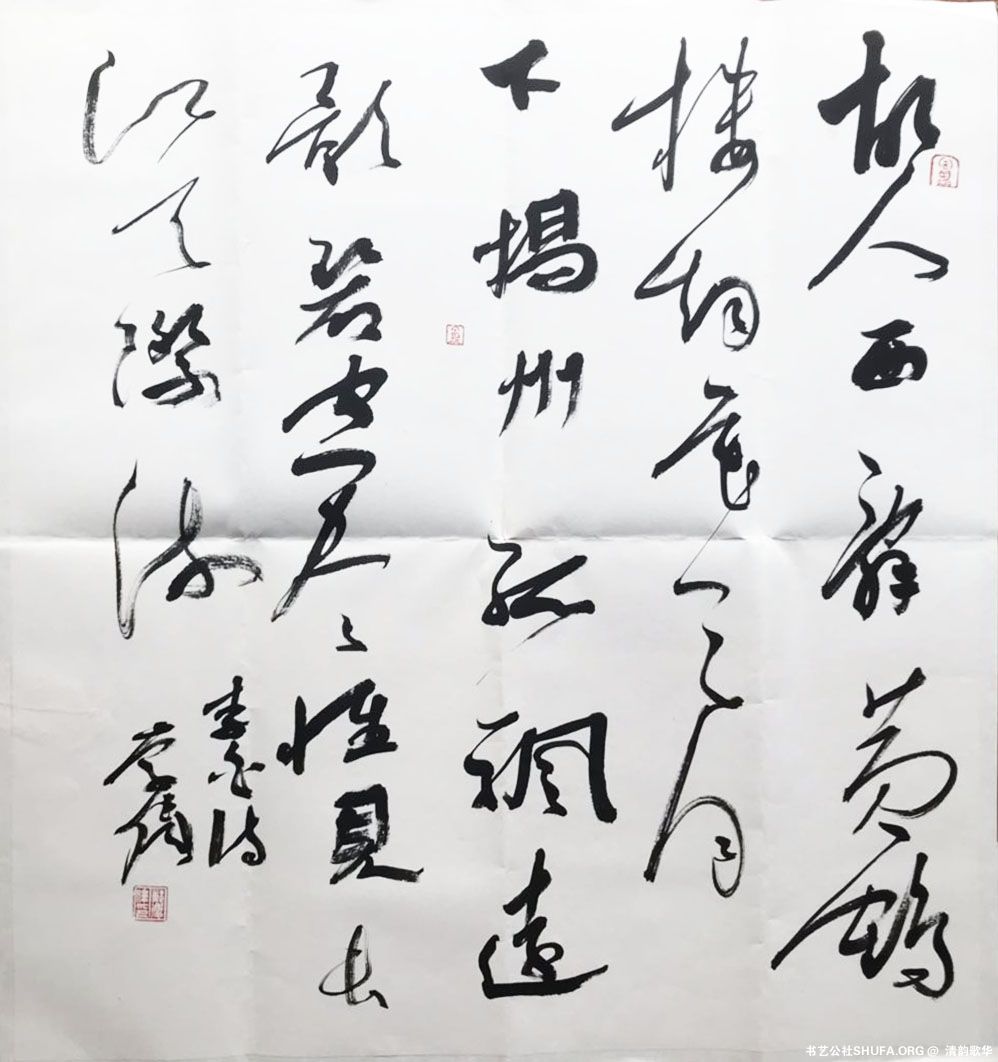 故人西辭黄鶴
樓烟花三月
下揚州孤帆遠
影碧空尽惟見長
江天際流
李白诗
书艺公社SHUFA.ORG @ 清韵歌华